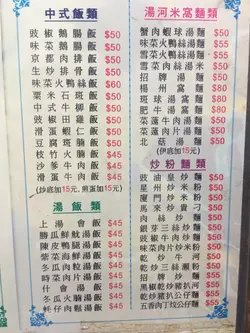 中式飯類
豉椒鵝腸飯 $50
味菜鵝腸飯 $50
京都肉排飯 $50
生炒排骨飯 $50
味菜鴨絲飯 $50
粟米石班飯 $50
中式牛柳飯 $50
豉椒田雞飯 $50
滑蛋蝦仁飯 $50
豆腐斑腩飯 $50
枝竹火腩飯 $50
沙爹牛肉飯 $50
滑蛋牛肉飯 $50
(炒底加15元,照蛋加15元)
湯飯類
上湯會飯 $45
勝瓜鮮魷湯飯 $45
陳皮鴨腿湯飯 $45
紫菜海鮮湯飯 $45
冬瓜肉粒湯飯 $45
時菜肉片湯飯 $45
什會湯飯 $45
冬瓜火腩湯飯 $45
杬仔肉鬆湯飯 $45
湯河米窩麵類
蟹肉蝦球湯麵 $50
味菜火鴨絲湯麵 $50
雪菜火鴨絲湯米 $50
雪菜肉絲湯米 $50
招牌湯麵 $50
楊州窩麵 $80
斑球湯窩麵 $80
肥牛湯窩麵 $80
菜薳牛肉湯麵 $50
菜薳肉片湯麵 $50
北菇湯麵 $50
(伊底加15元)
炒粉麵類
豉油皇炒麵 $50
星州炒米粉 $50
廈門炒米粉 $50
馬來炒貴刁 $50
肉絲炒麵 $50
銀芽三絲炒麵 $50
豉椒牛肉炒麵 $50
味菜牛肉炒麵 $50
乾炒牛河 $50
乾炒三絲瀨粉 $50
招牌炒河 $50
黑椒乾炒豬扒河 $55
乾炒豬扒公仔麵 $55
五香肉丁炆公仔麵 $55